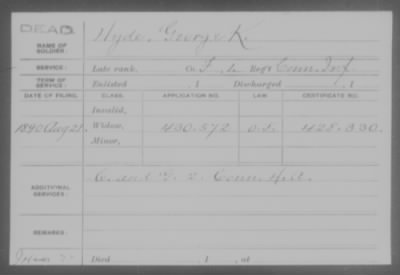 DEAD
NAME OF SOLDIER: Hyde, George K.
SERVICE: Late rank, Co. Reg't Conn. Inf.
TERM OF SERVICE: Enlisted , 1 Discharged , 1
DATE OF FILING. CLASS. APPLICATION NO. LAW. CERTIFICATE NO.
Invalid,
1890 Aug 21. Widow, 430.572 425.330.
Minor,
ADDITIONAL SERVICES: Conn.
REMARKS:
Died , 1 , at